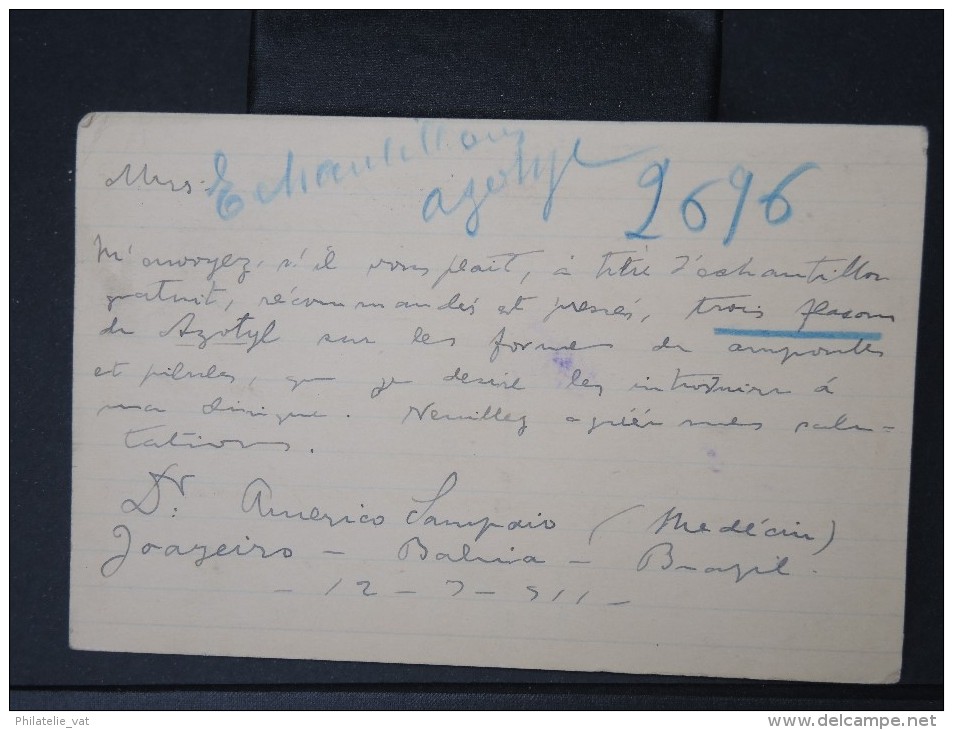 Mrs.
Echantillons
azotyl
2696
M'envoyez, s'il vous plait, à titre d'échantillon
gratuit, récommandés et pressés, trois flacons
de Azotyl sur les formes de ampoules
et pilules, que je desire les introduire á
ma clinique. Veuillez agréér mes salu-
tations.
Dr. Americo Sampaio (Medécin)
Joazeiro - Bahia - Brazil.
Philatelie_vat
www.delcampe.net